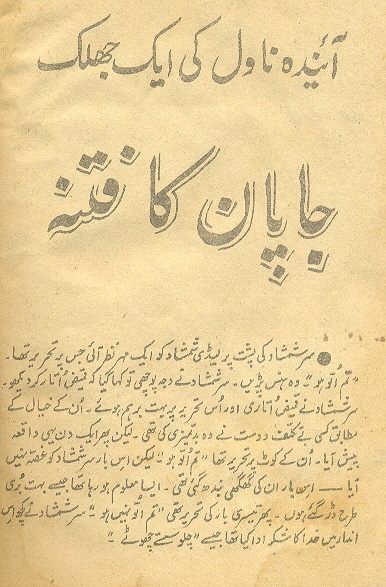 آئندہ ناول کی ایک جھلک
جاپان کا فتنہ
● سرشمشاد کی پشت پر لیڈی شمشاد کو ایک مہر نظر آئی جس پر تحریر تھا۔
”تم اُلّو ہو“ وہ ہنس پڑیں۔ سرشمشاد نے وجہ پوچھی تو کہا گیا کہ قمیض اُتار کر دیکھو۔
سرشمشاد نے قمیض اُتاری اور اُس تحریر پر بہت برہم ہوئے۔ اُن کے خیال کے
مطابق کسی بے تکلف دوست نے وہ بدتمیزی کی تھی۔ لیکن پھر ایک دن یہی واقعہ
پیش آیا۔ اُن کے کوٹ پر تحریر تھا ”تم اُلّو ہو“ لیکن اس بار سرشمشاد کو غصّہ نہیں
آیا — اس بار ان کی گھگھی بندھ گئی تھی۔ ایسا معلوم ہو رہا تھا جیسے بہت بُری
طرح ڈر گئے ہوں۔ پھر تیسری بار کی تحریر تھی ”تم اُلّو نہیں ہو“ سرشمشاد نے کچھ اِس
انداز میں خدا کا شکر ادا کیا تھا جیسے ”چلو سستے چھوٹے“